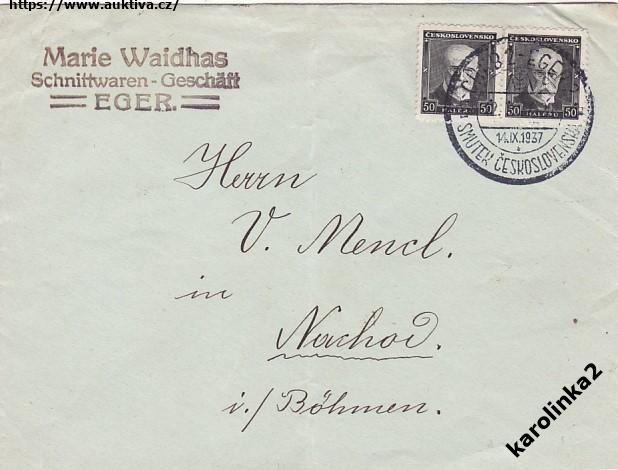 https://www.auktiva.cz/
Marie Waidhas
Schnittwaren-Geschäft
EGER.
ČESKOSLOVENSKO
50 HALÉŘŮ 50
ČESKOSLOVENSKO
50 HALÉŘŮ 50
CHEB 2-EGER
14.IX.1937
SMUTEK ČESKOSLOVENSKA
Herrn
V. Mencl.
in
Nachod.
i./Böhmen.
karolinka2